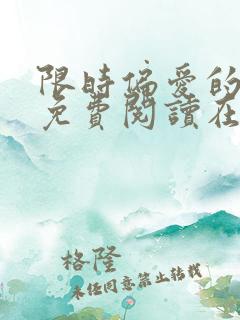 限時偏愛的
免費閱讀在
格隆
未经同意禁止转载